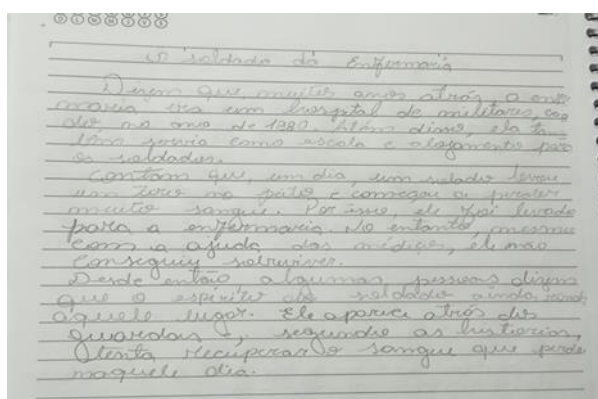 O soldado da Enfermaria
Dizem que muitos anos atrás a enfer
maria era um hospital de militares,
do no ano de 1880. Além disso, ela ta
bém servia como escola e alojamento par
os soldados.
Contam que, um dia, um soldado levou
um tiro no pátio e começou a perder
muito sangue. Por isso, ele foi levado
para a enfermaria. No entanto, mesmo
com a ajuda dos médicos, ele não
conseguiu sobreviver.
Desde então algumas pessoas dizem
que o espírito do soldado ainda
aquele lugar. Ele aparece atrás dos
guardas e, segundo as histórias,
tenta recuperar o sangue que perde
naquele dia.